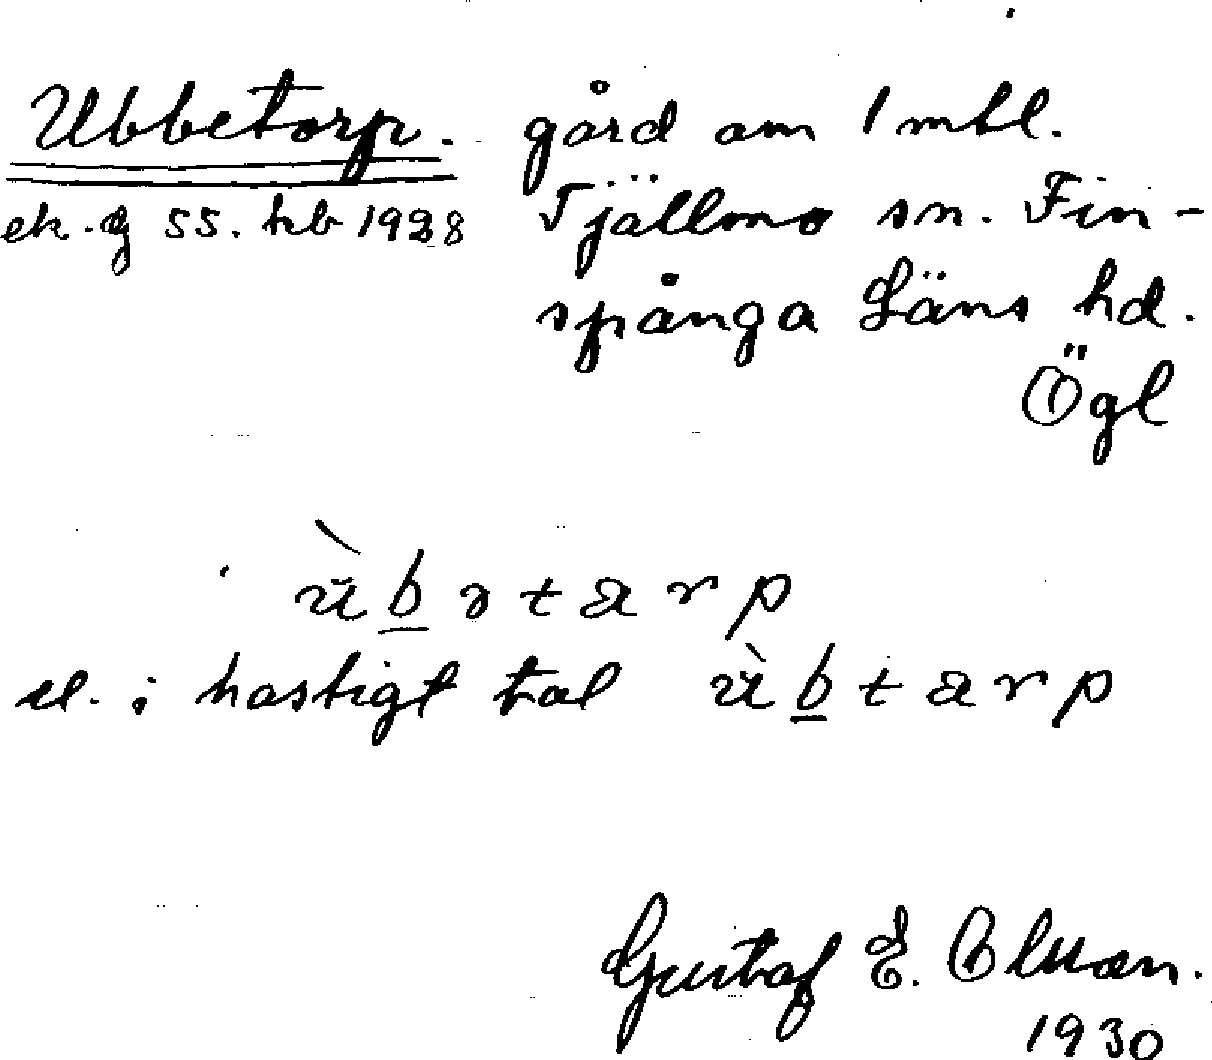 Ubbetorp. gård om 1 mtl.
ek. 55. hb 1928 Tjällmo sn. Fin-
spånga Läns hd.
Ögl
ùbətarp
el. i hastigt tal ùbtarp
Gustaf E. Olsson.
1930